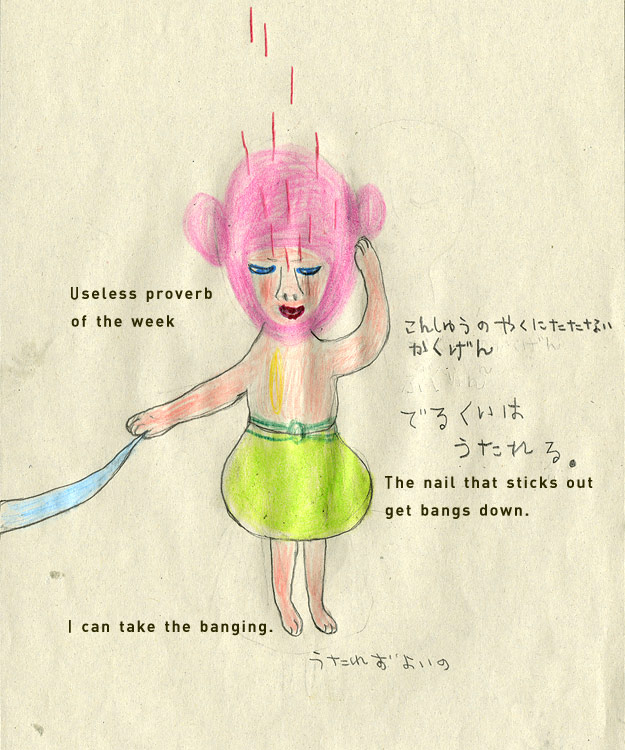 Useless proverb
of the week
こんしゅうの やくにたたない
かくげん
でるくいは
うたれる。
The nail that sticks out
get bangs down.
I can take the banging.
うたれずよいの